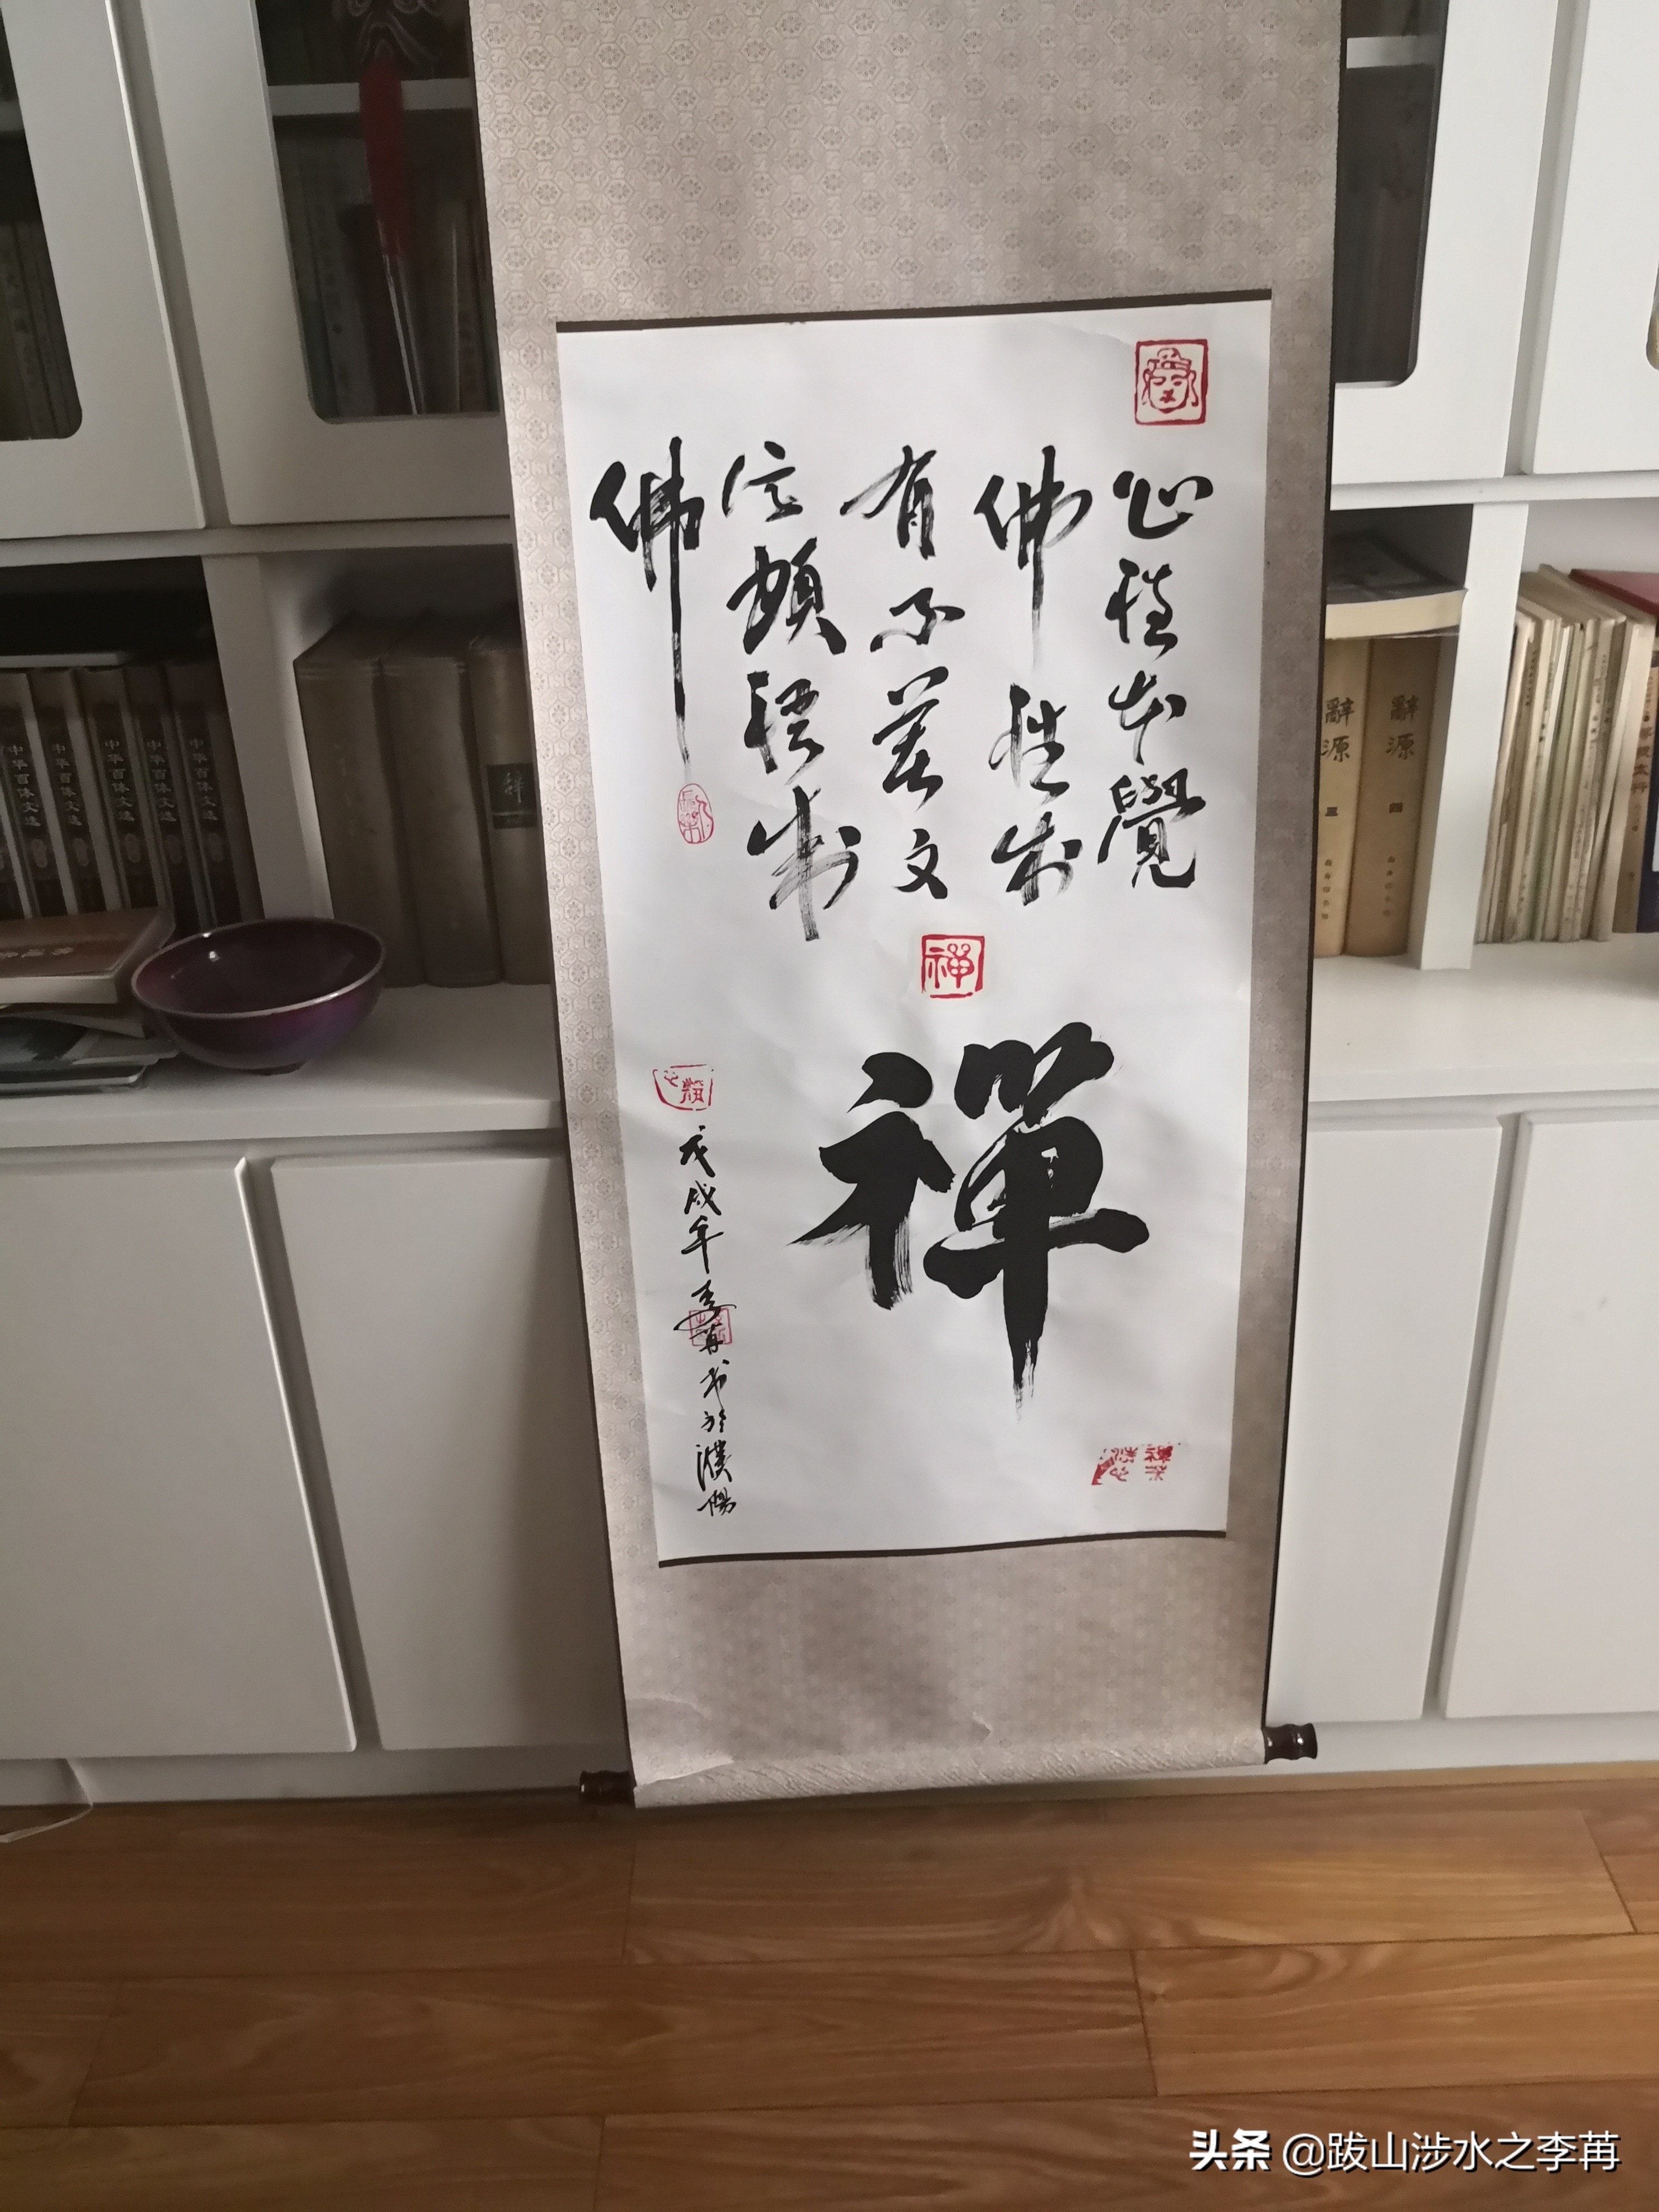 心性本覺
佛性本
有不著文
字頓悟成
佛
禪
禪
戊戌年李苒书於濮陽
中华百体文选
中华百体文选
中华百体文选
中华百体文选
中华百体文选
辭源 三
辭源 四
头条 @跋山涉水之李苒